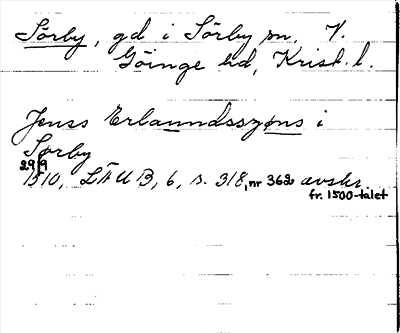 Sörby, gd i Sörby sn, V.
Göinge hd, Krist. l.
Jenss Erlaunndsszøns i
Sørby
29/9
1510, LÄUB, 6, s. 318, nr 362 avskr.
fr. 1500-talet